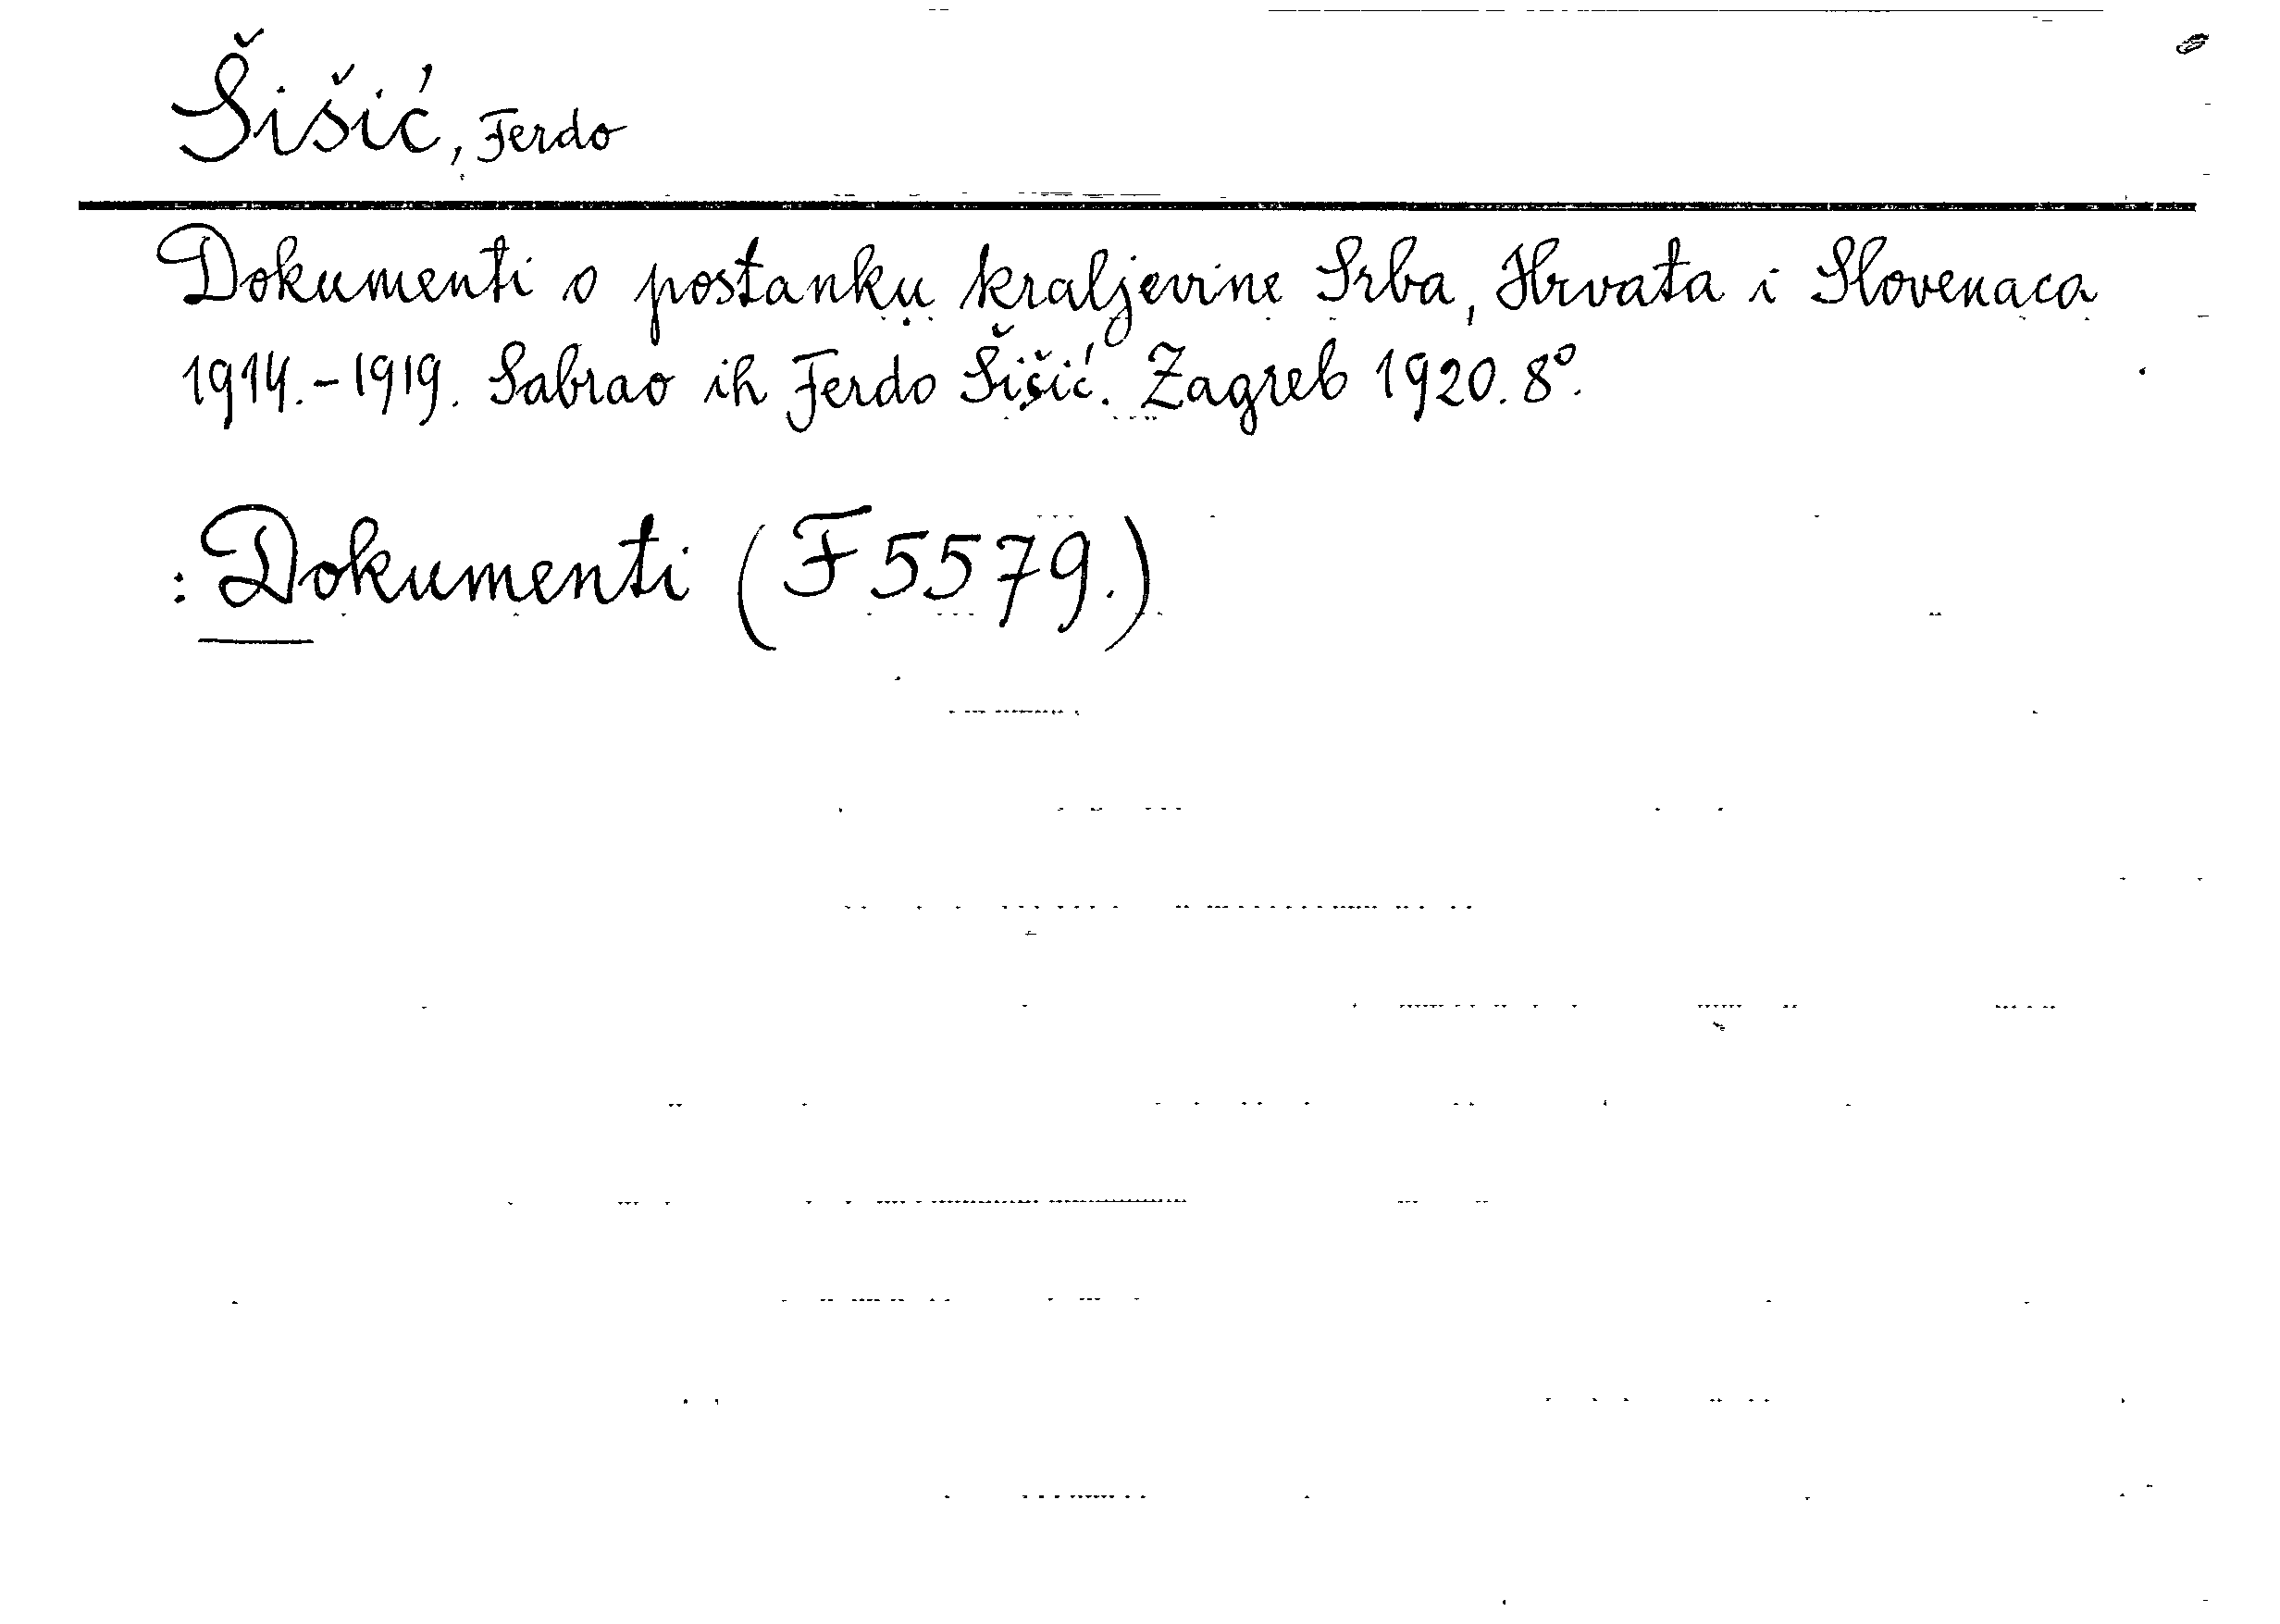 Šišić, Ferdo
Dokumenti o postanku kraljevine Srba, Hrvata i Slovenaca
1914.-1919. Sabrao ih Ferdo Šišić. Zagreb 1920. 8°.
: Dokumenti (F 5579.)